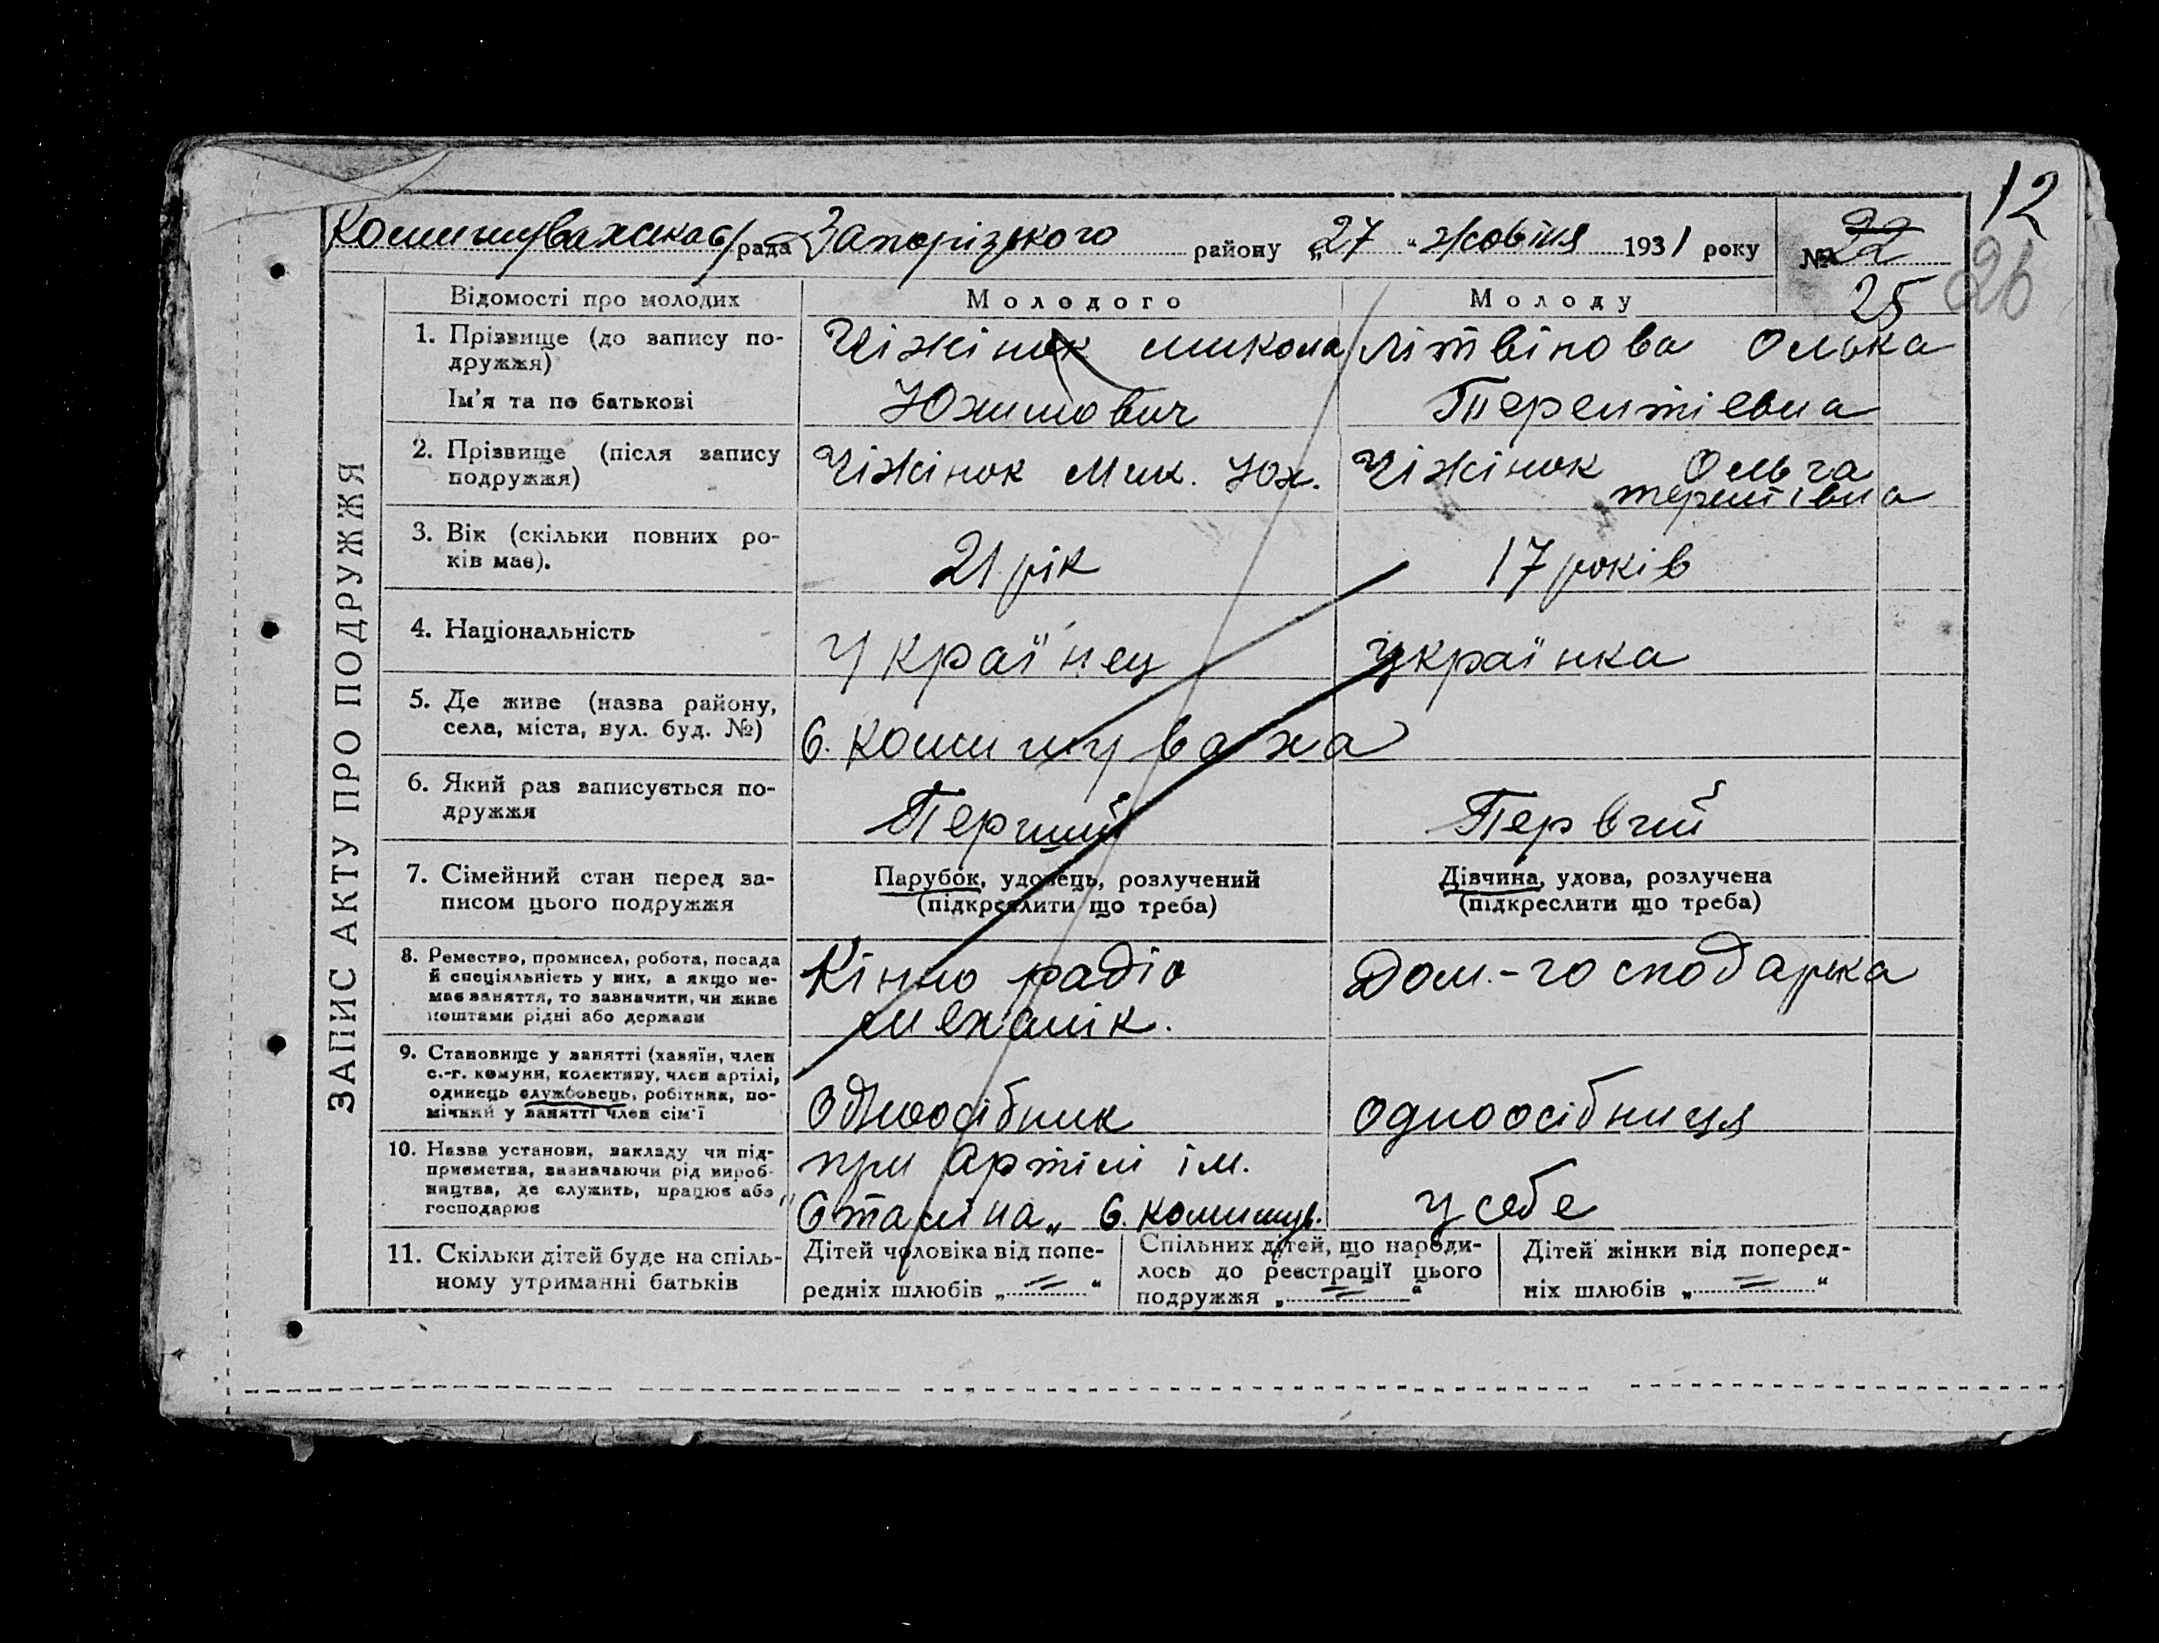 12
Комишувахська с/рада Запорізького району „27 “ жовтня 1931 року № 22
25
26
ЗАПИС АКТУ ПРО ПОДРУЖЖЯ
Відомості про молодих Молодого Молоду
1. Прізвище (до запису по-
дружжя)
Чіжінок микола Літвінова Олька
Ім'я та по батькові Юхимович Терентіевна
2. Прізвище (після запису
подружжя)
Чіжінок Мик. Юх. Чіжінок Ольга
терентівна
3. Вік (скільки повних ро-
ків має).
21 рік 17 років
4. Національність Українец українка
5. Де живе (назва району,
села, міста, вул. буд. №)
с. Комишуваха
6. Який раз записується по-
дружжя
Перший Первий
7. Сімейний стан перед за-
писом цього подружжя
Парубок, удовець, розлучений
(підкреслити що треба)
Дівчина, удова, розлучена
(підкреслити що треба)
8. Ремество, промисел, робота, посада
й спеціяльність у них, а якщо не-
має заняття, то зазначити, чи живе
коштами рідні або держави
Кінно радіо
механік.
Дом.-господарька
9. Становище у занятті (хазяїн, член
с.-г. комуни, колективу, член артілі,
одинець службовець, робітник, по-
мічний у занятті член сім'ї
Одноосібник одноосібниця
10. Назва установи, закладу чи під-
приємства, зазначаючи рід вироб-
ництва, де служить, працює або
господарює
при артілі ім.
„Сталіна„ с. комишув. у себе
11. Скільки дітей буде на спіль-
ному утриманні батьків
Дітей чоловіка від попе-
редніх шлюбів „ = “
Спільних дітей, що народи-
лось до реєстрації цього
подружжя „ = “
Дітей жінки від поперед-
ніх шлюбів „ = “